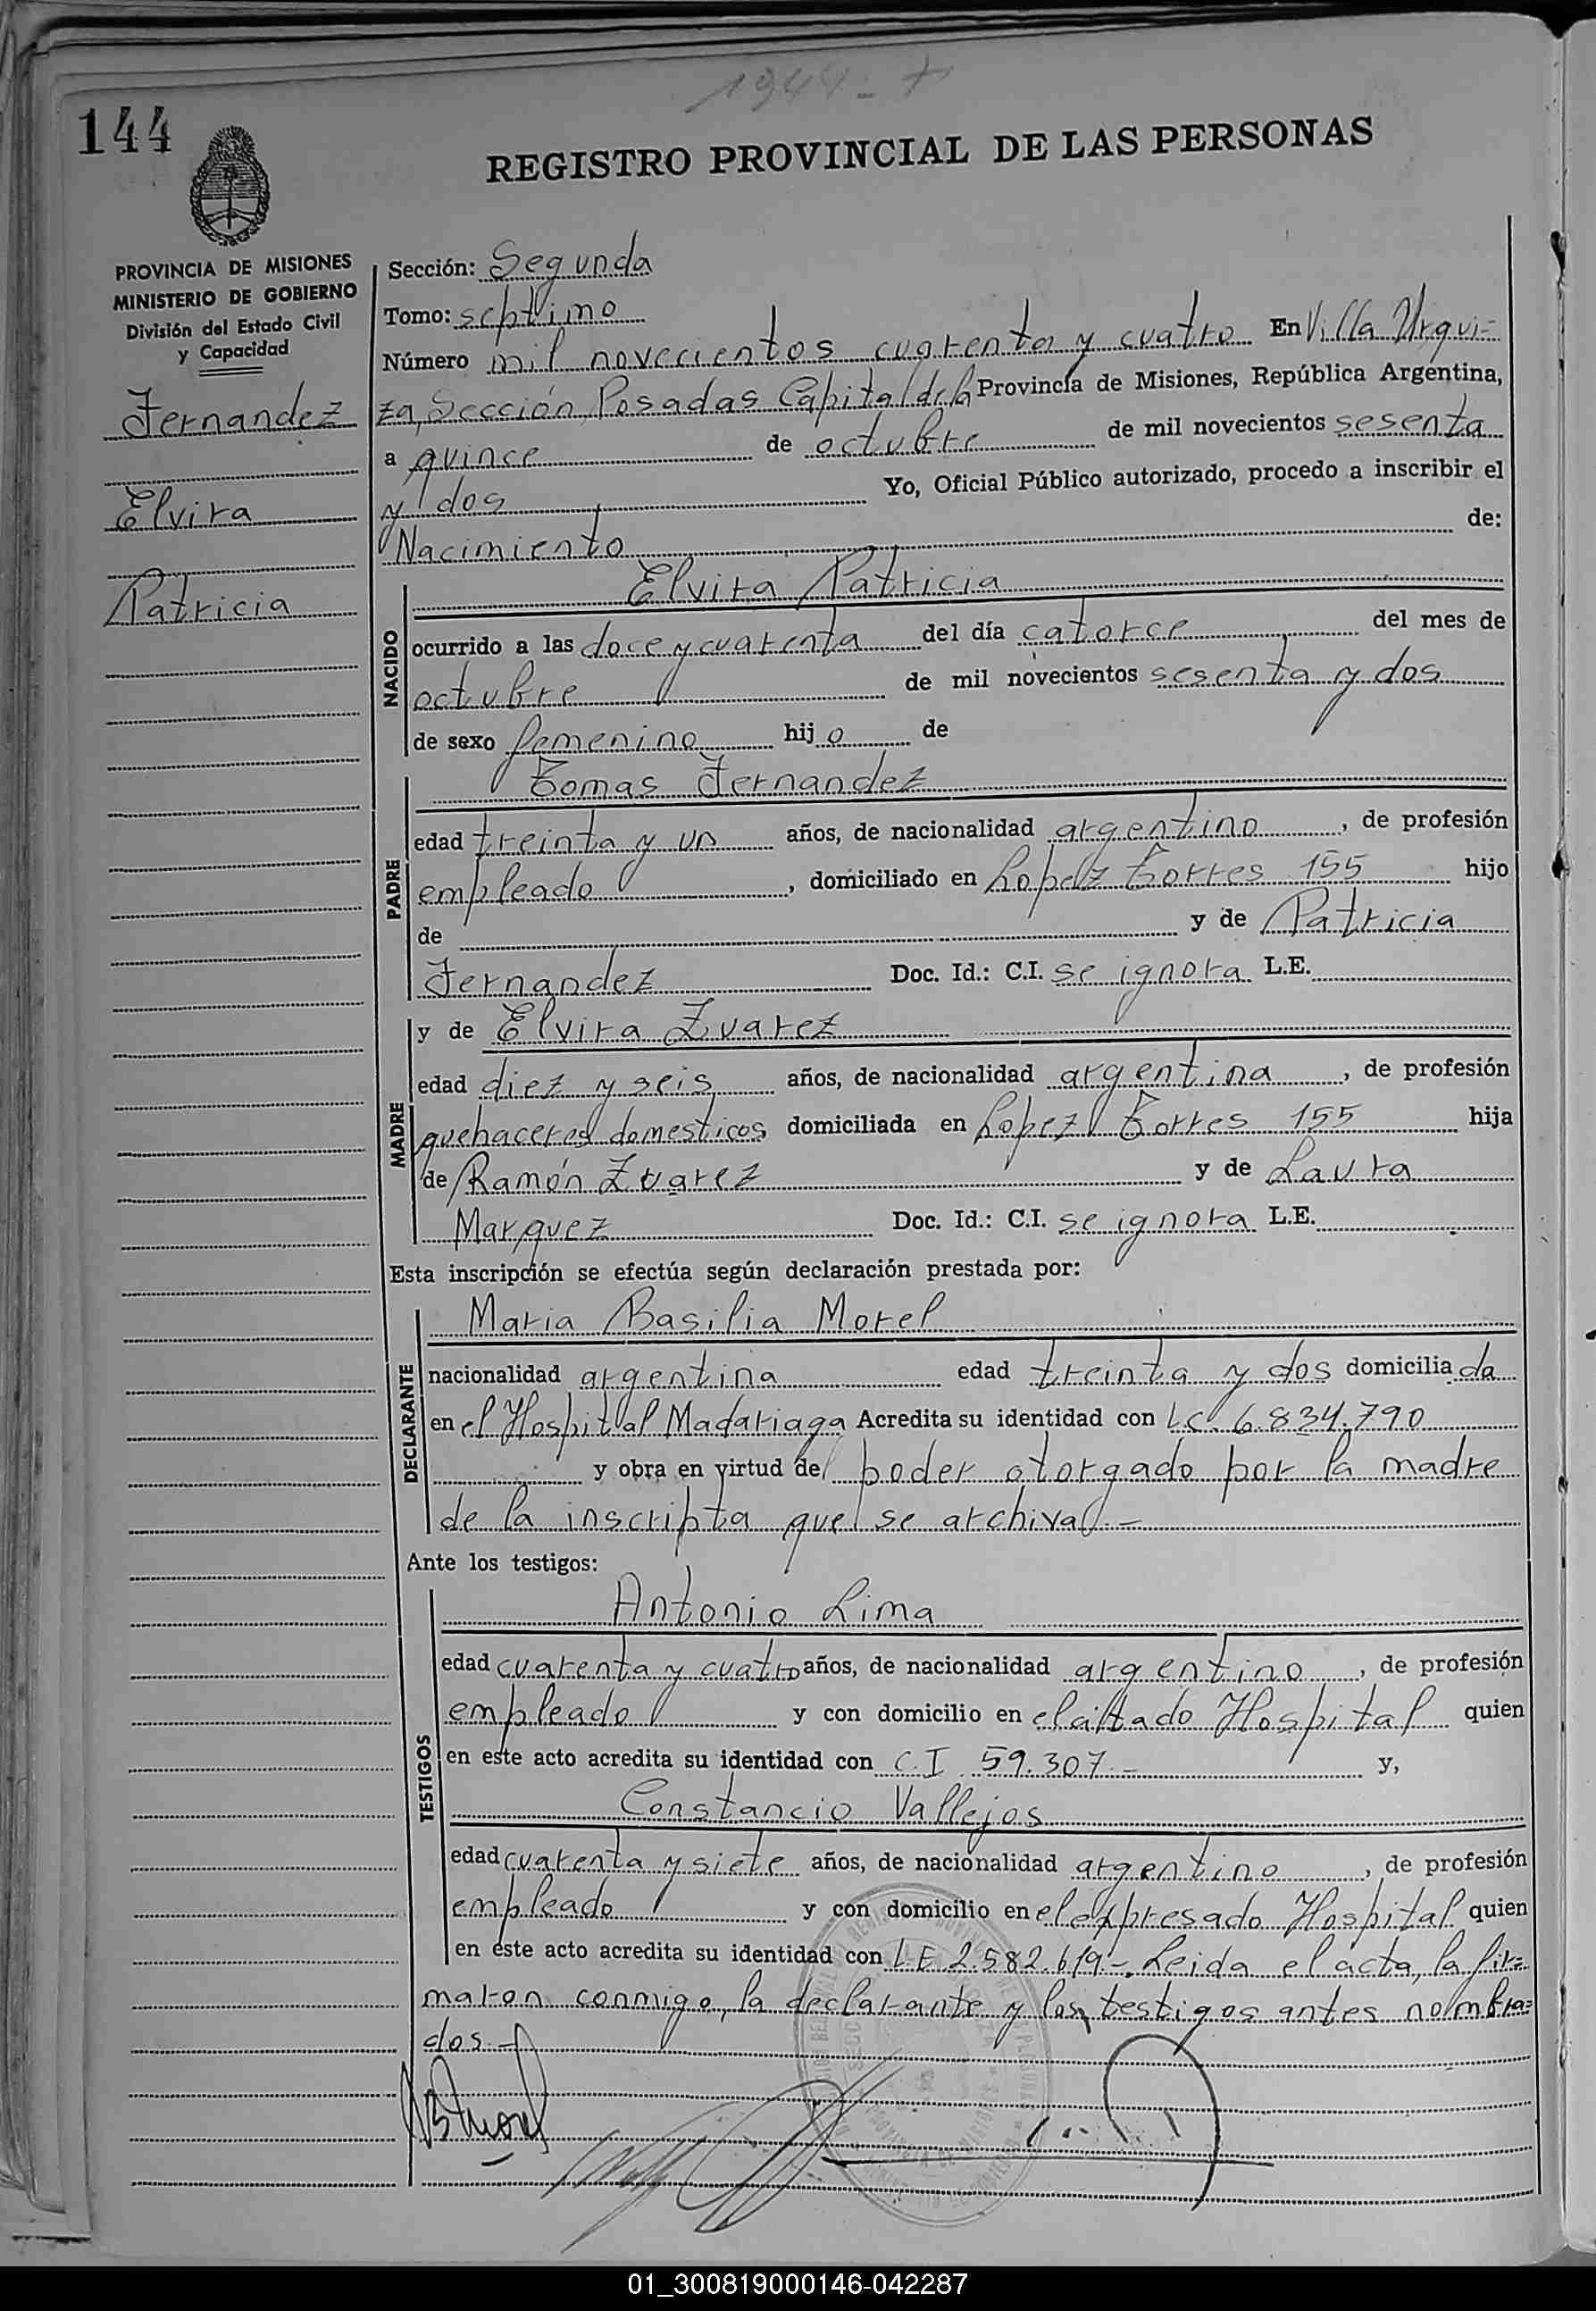 1944 - +
144
REGISTRO PROVINCIAL DE LAS PERSONAS
PROVINCIA DE MISIONES
MINISTERIO DE GOBIERNO
División del Estado Civil
y Capacidad
Fernandez
Elvira
Patricia
Sección: Segunda
Tomo: septimo
Número mil novecientos cuarenta y cuatro En Villa Urqui-
za, Sección Posadas Capital de la Provincia de Misiones, República Argentina,
a quince de octubre de mil novecientos sesenta
y dos Yo, Oficial Público autorizado, procedo a inscribir el
Nacimiento de:
NACIDO
Elvira Patricia
ocurrido a las doce y cuarenta del día catorce del mes de
octubre de mil novecientos sesenta y dos
de sexo femenino hij o de
PADRE
Tomas Fernandez
edad treinta y un años, de nacionalidad argentino, de profesión
empleado, domiciliado en Lopez Torres 155 hijo
de y de Patricia
Fernandez Doc. Id.: C.I. se ignora L.E.
MADRE
y de Elvira Zuarez
edad diez y seis años, de nacionalidad argentina, de profesión
quehaceres domesticos domiciliada en Lopez Torres 155 hija
de Ramón Zuarez y de Laura
Marquez Doc. Id.: C.I. se ignora L.E.
Esta inscripción se efectúa según declaración prestada por:
DECLARANTE
Maria Basilia Morel
nacionalidad argentina edad treinta y dos domicilia da
en el Hospital Madariaga Acredita su identidad con L.C. 6.834.790
y obra en virtud de poder otorgado por la madre
de la inscripta que se archiva.-
Ante los testigos:
TESTIGOS
Antonio Lima
edad cuarenta y cuatro años, de nacionalidad argentino, de profesión
empleado y con domicilio en el citado Hospital quien
en este acto acredita su identidad con C.I 59.307.- y,
Constancio Vallejos
edad cuarenta y siete años, de nacionalidad argentino, de profesión
empleado y con domicilio en el expresado Hospital quien
en este acto acredita su identidad con L E 2.582.619.- Leida el acta, la fir=
maron conmigo, la declarante y los testigos antes nombra=
dos.-
01_300819000146-042287